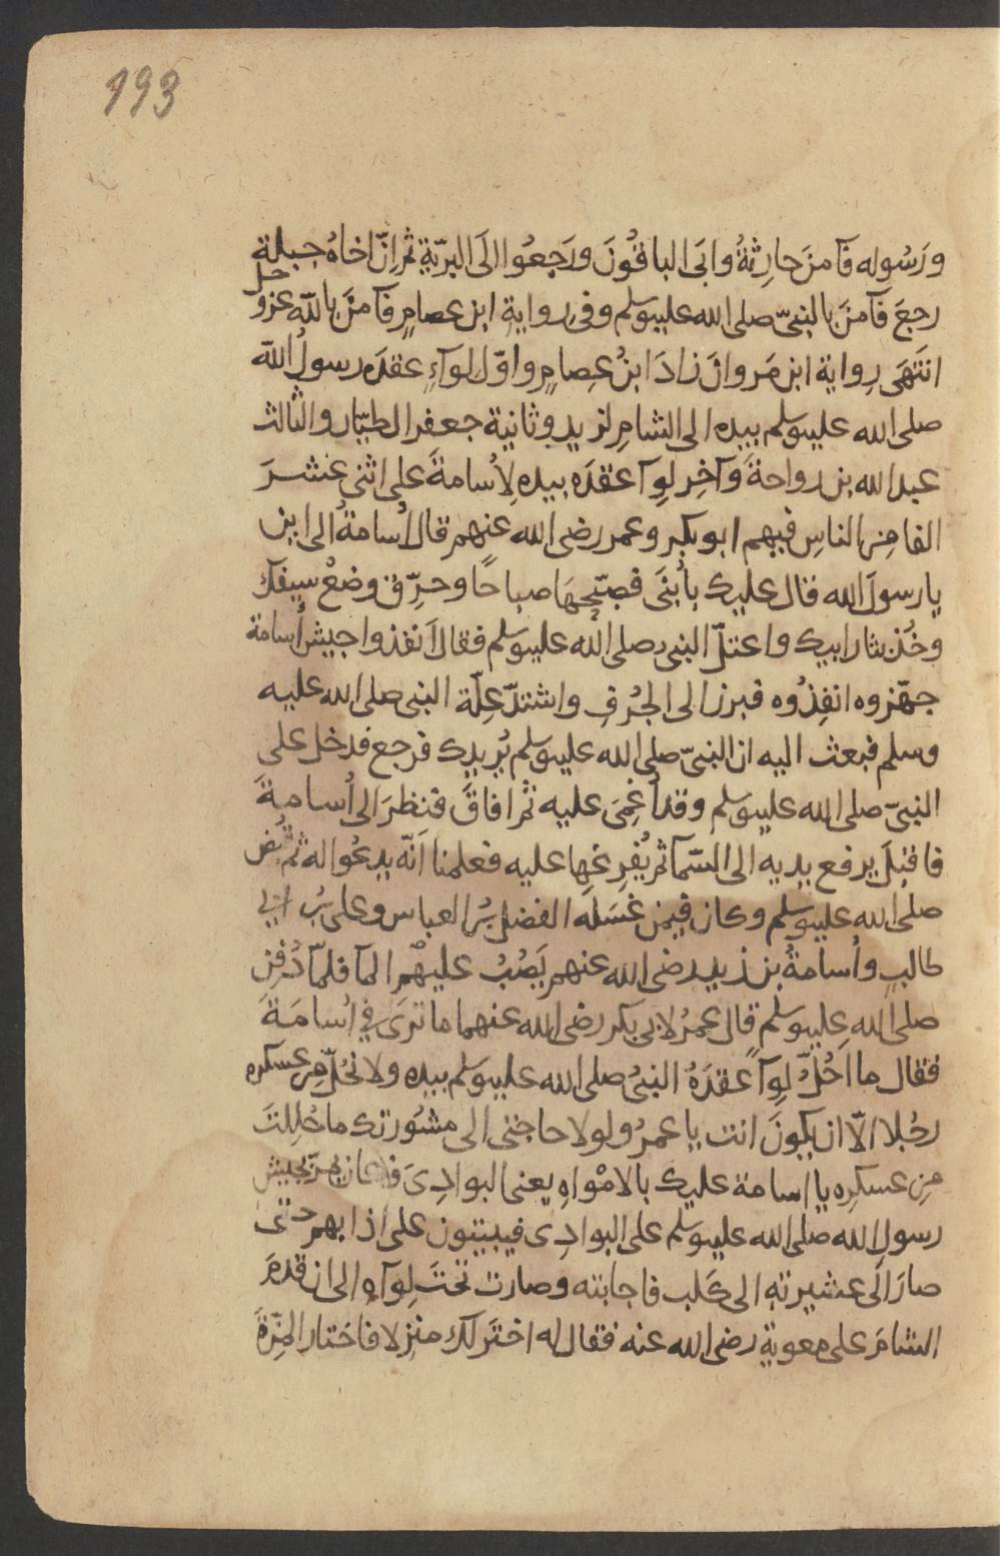 193
ورَسُوله فآمنَ حارِثةُ وابَى الباقُونَ ورَجعُوا الَى البرّيةِ ثم اِنّ اخاهُ جبلة
رجعَ فآمنَ بالنبىّ صلى الله عليه وسلم وفى رواية ابن عصامٍ فآمنَ بالله عز وجل
انتَهَى رِواية ابن مَروانَ زادَ ابنُ عِصامٍ واوّل لوآءٍ عقدَه رسولُ الله
صلى الله عليه وسلم بيده الى الشامِ لزيدٍ وثانية جعفر الطيّار والثالث
عبد الله بن رواحةَ وآخِر لوِآ عقدَه بيدهِ لِاُسامةَ على اثنى عشرَ
الفا مِن الناسِ فيهم ابو بكر وعمر رضى الله عنهم قال اُسامةُ الى اين
يا رسولَ الله قال عليك باُبنَى فصبّحهَا صباحًا وحرّق وضعْ سيفك
وخُذ بثار ابيك واعتلّ النبى صلى الله عليه وسلم فقال اَنفذوا جيش اُسامة
جهّزوه انفِذُوه فبرز الى الجُرفِ واشتدّ عِلّة النبى صلى الله عليه
وسلم فبعث اليه ان النبىّ صلى الله عليه وسلم يُريدك فرجع فدخل على
النبىّ صلى الله عليه وسلم وقد اُغمِىَ عليه ثم افاقَ فنظرَ الى اُسامةَ
فاقبلَ يرفع يديه الى السّمآ ثم يُفرِغها عليه فعلمنا اَنّه يدعُوا له ثم قُبض
صلى الله عليه وسلم وكان فيمن غسَلَه الفضل بنُ العباس وعلى بنُ ابى
طالبٍ واُسامةُ بن زيد رضى الله عنهم يَصُبُ عليهُم المآ فلمّا دُفن
صلى الله عليه وسلم قال عمرُ لابى بكر رضى الله عنهما ما ترَى فى اُسامَةَ
فقال ما احُلّ لِوآً عقدَهُ النبىُ صلى الله عليه وسلم بيده ولا تحُلّ مِن عسكره
رجُلا الّا ان يكونَ انت يا عمرُ ولولا حاجتى الى مشُورتك ما حُلِلتَ
مِن عسكرِه يا اسامة عليك بالامْواهِ يعنى البوادِىَ فكان يمرّ بجيش
رسولِ الله صلى الله عليه وسلم على البوادِى فيبيتون على اذا بهم حتى
صارَ الَى عشيرته الى كَلب فاجابته وصارت تحتَ لِوآءِ الى ان قدمَ
الشامَ على معوية رضى الله عنه فقال له اختَر لك منزلا فاختار المِزّةَ